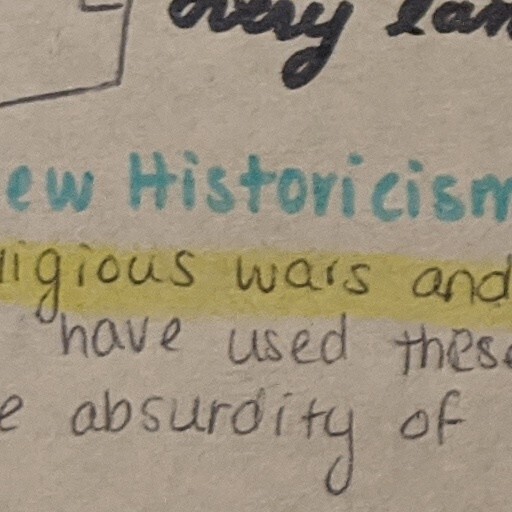 every lan
ew Historicism
ligious wars and
have used these
e absurdity of